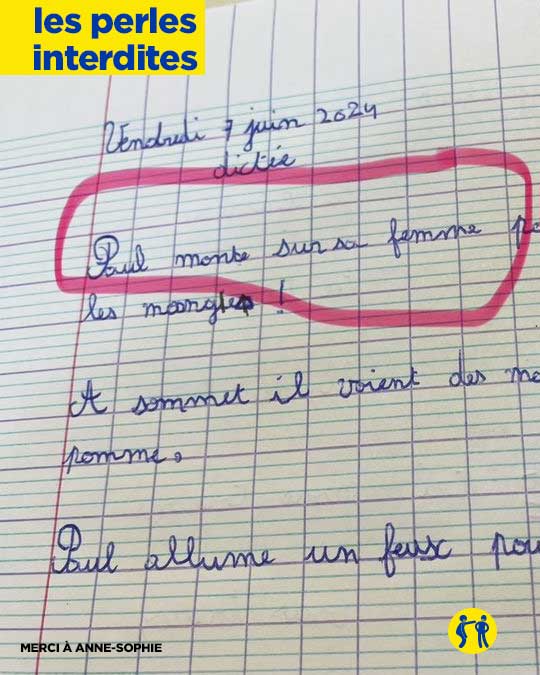 les perles
interdites
Vendredi 7 juin 2024
dictée
Paul monte sur sa femme
les
A sommet il voient des
pomme.
Paul allume un feux
MERCI À ANNE-SOPHIE